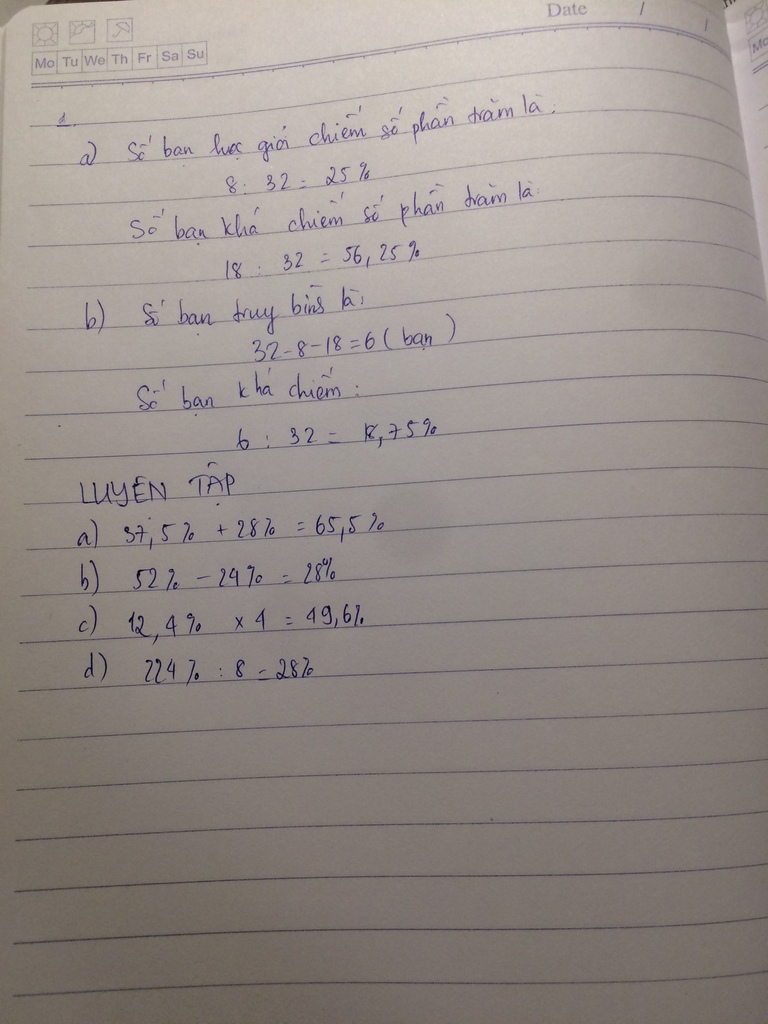 Date / /
Mo Tu We Th Fr Sa Su
1.
a) Số bạn học giỏi chiếm số phần trăm là:
8 : 32 = 25%
Số bạn khá chiếm số phần trăm là:
18 : 32 = 56,25%
b) Số bạn truy bình là:
32-8-18=6 (bạn)
Số bạn khá chiếm:
6 : 32 = 18,75%
LUYỆN TẬP
a) 37,5% + 28% = 65,5%
b) 52% - 24% = 28%
c) 12,4% x 4 = 49,6%
d) 224% : 8 = 28%